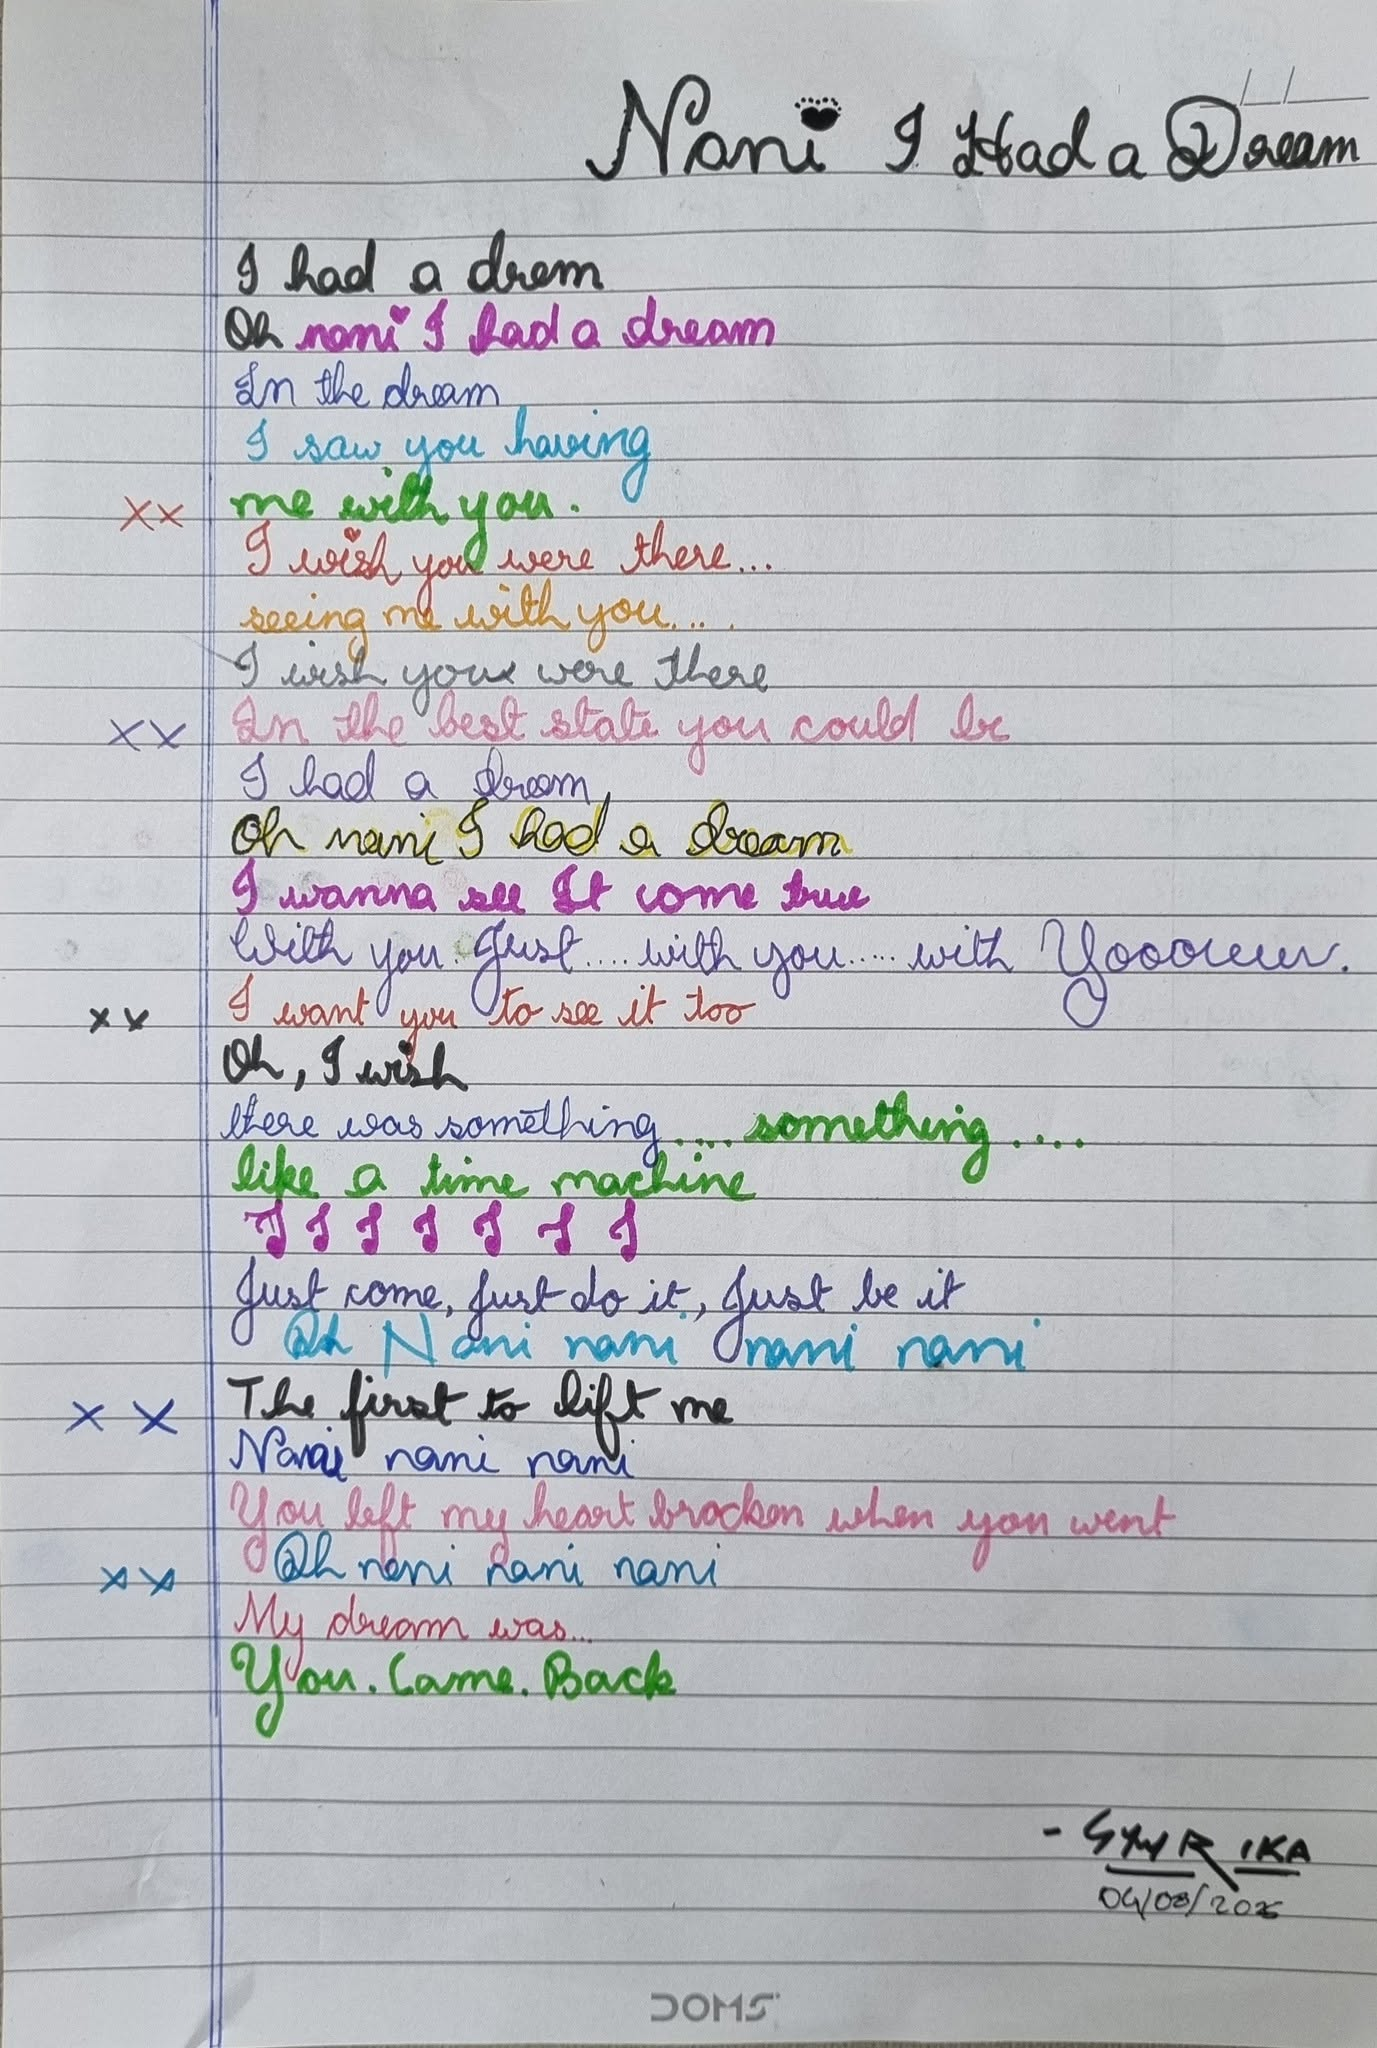 Nani I Had a Dream
I had a drem
Oh nani I had a dream
In the dream
I saw you having
xx me with you.
I wish you were there...
seeing me with you....
I wish you were there
xx In the best state you could be
I had a dream,
Oh nani I had a dream
I wanna see It come true
With you. Just .... with you..... with Yooouuu.
xx I want you to see it too
Oh, I wish
there was something .... something ....
like a time machine
J J J J J J J
Just come, Just do it, Just be it
Oh Nani nani nani nani
x x The first to lift me
Nani nani nani
You left my heart brocken when you went
xx Oh nani nani nani
My dream was...
You. Came. Back
DOMS